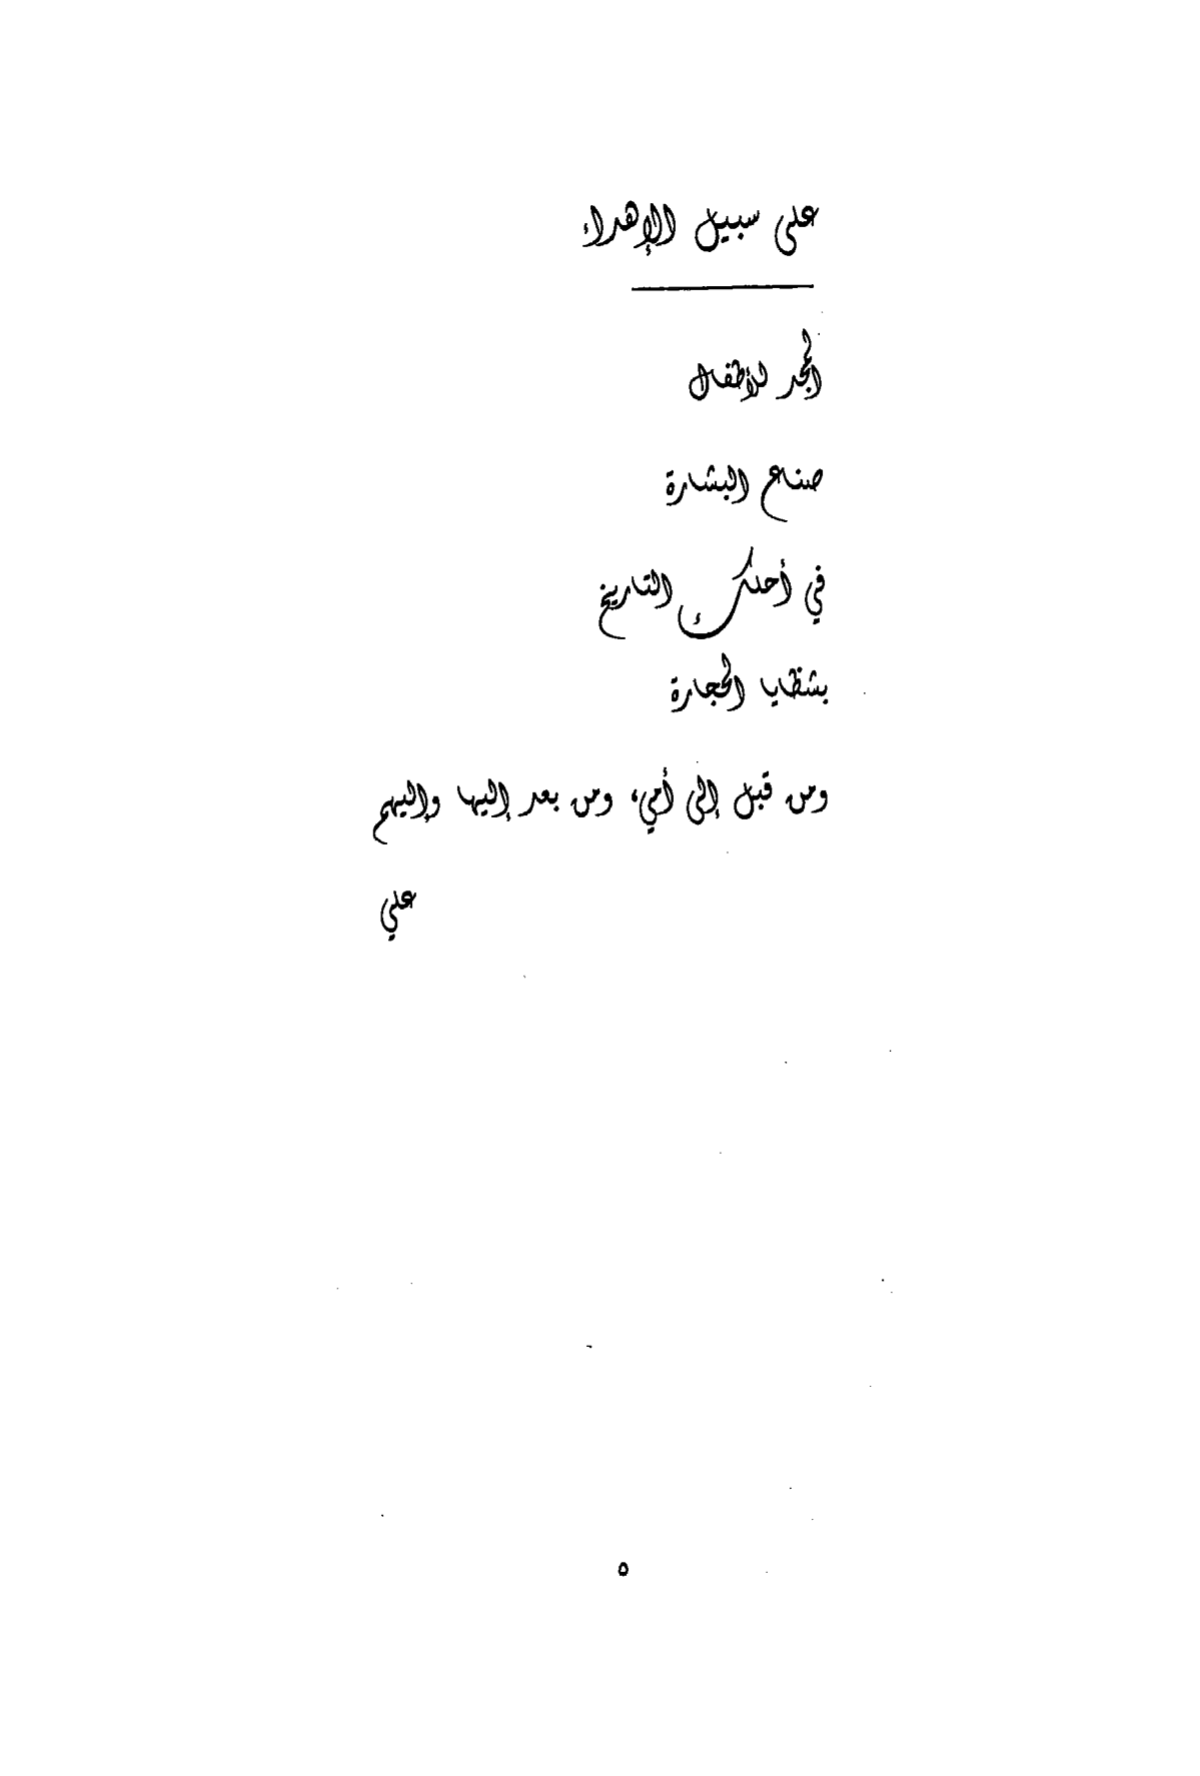 على سبيل الإهداء
المجد للأطفال
صناع البشارة
في أحلك التاريخ
بشظايا الحجارة
ومن قبل إلى أمي، ومن بعد إليها وإليهم
علي
٥